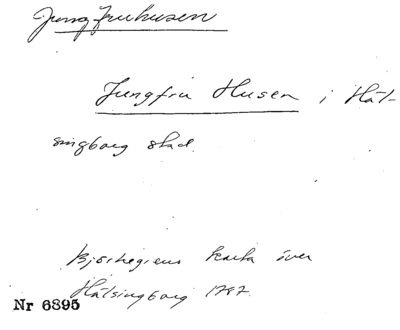 Jungfruhusen
Jungfru Husen i Häl-
singborg stad.
Björkegrens karta över
Hälsingborg 1787.
Nr 6895